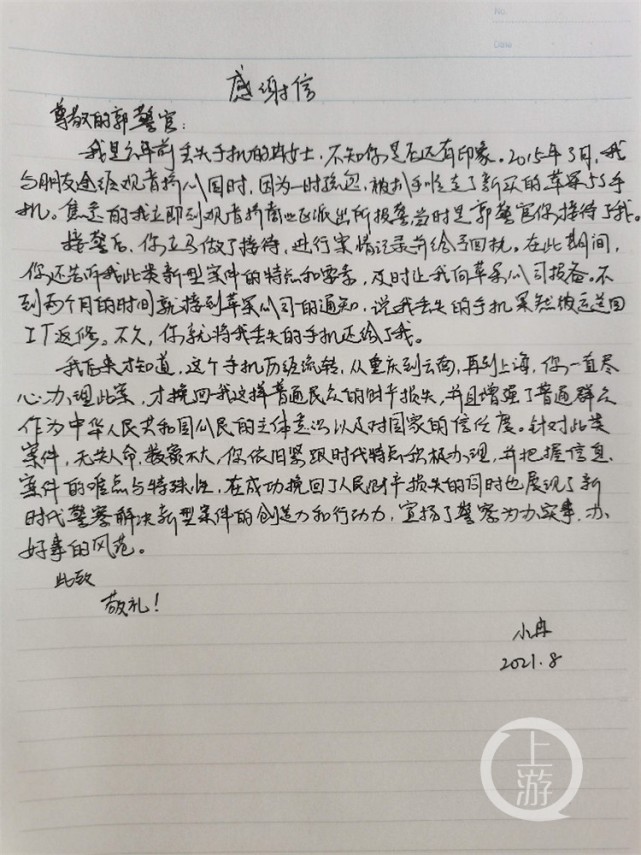 No.
Date
感谢信
尊敬的郭警官:
我是六年前丢失手机的冉女士,不知你是否还有印象。2015年3月,我
与朋友途经观音桥公园时,因为一时疏忽,被扒手顺走了新买的苹果5S手
机。焦急的我立即到观音桥商业区派出所报警当时是郭警官你接待了我。
接警后,你立马做了接待,进行案情记录并给予回执。在此期间,
你还告诉我此类新型案件的特点和要素,及时让我向苹果公司报备。不
到两个月的时间就接到苹果公司的通知,说我丢失的手机果然被运送回
工厂返修。不久,你就将我丢失的手机还给了我。
我后来才知道,这个手机历经流转,从重庆到云南,再到上海,你一直尽
心办理此案,才挽回我这样普通民众的财产损失,并且增强了普通群众
作为中华人民共和国公民的主体意识以及对国家的信任度。针对此类
案件,无失人命,数额不大,你依旧紧跟时代特点积极办理,并把握信息、
案件的难点与特殊性,在成功挽回了人民财产损失的同时也展现了新
时代警察解决新型案件的创造力和行动力,宣扬了警察为办实事、办
好事的风范。
此致
敬礼!
小冉
2021.8
上游